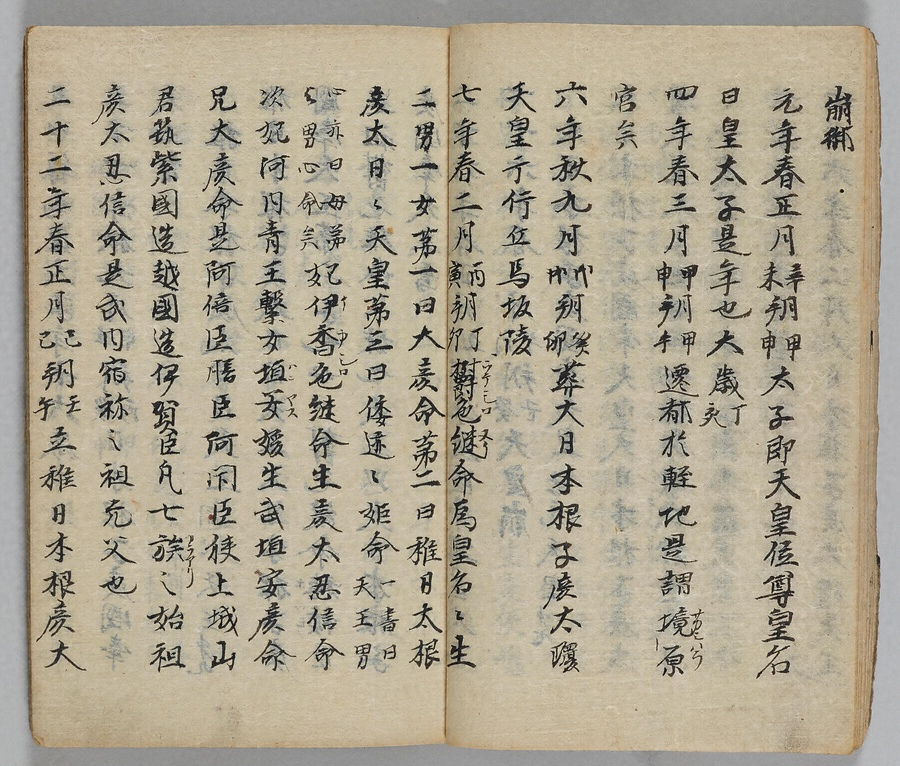 崩御
元年春正月辛未朔甲申太子即天皇位尊皇名
日皇太子是年也大歳丁亥
四年春三月甲申朔甲午遷都於軽地是謂境原
宮矣
六年秋九月戊戌朔癸卯葬大日本根子彦太瓊
天皇于片丘馬坂陵
七年春二月丙寅朔丁卯欝色継命為皇名〻生
二男一女第一曰大彦命第二曰稚日太根
彦太日〻天皇第三曰倭迹〻姫命一書曰天王男
心亦曰母弟〻男心命矣妃伊香色継命生彦太忍信命
次妃河内青王繋女埴安媛生武埴安彦命
兄大彦命是阿倍臣膳臣阿閇臣狭上城山
君筑紫國造越國造伊賀臣凡七族〻始祖
彦太忍信命是武内宿祢〻祖充父也
二十二年春正月己巳朔壬午立稚日本根彦大